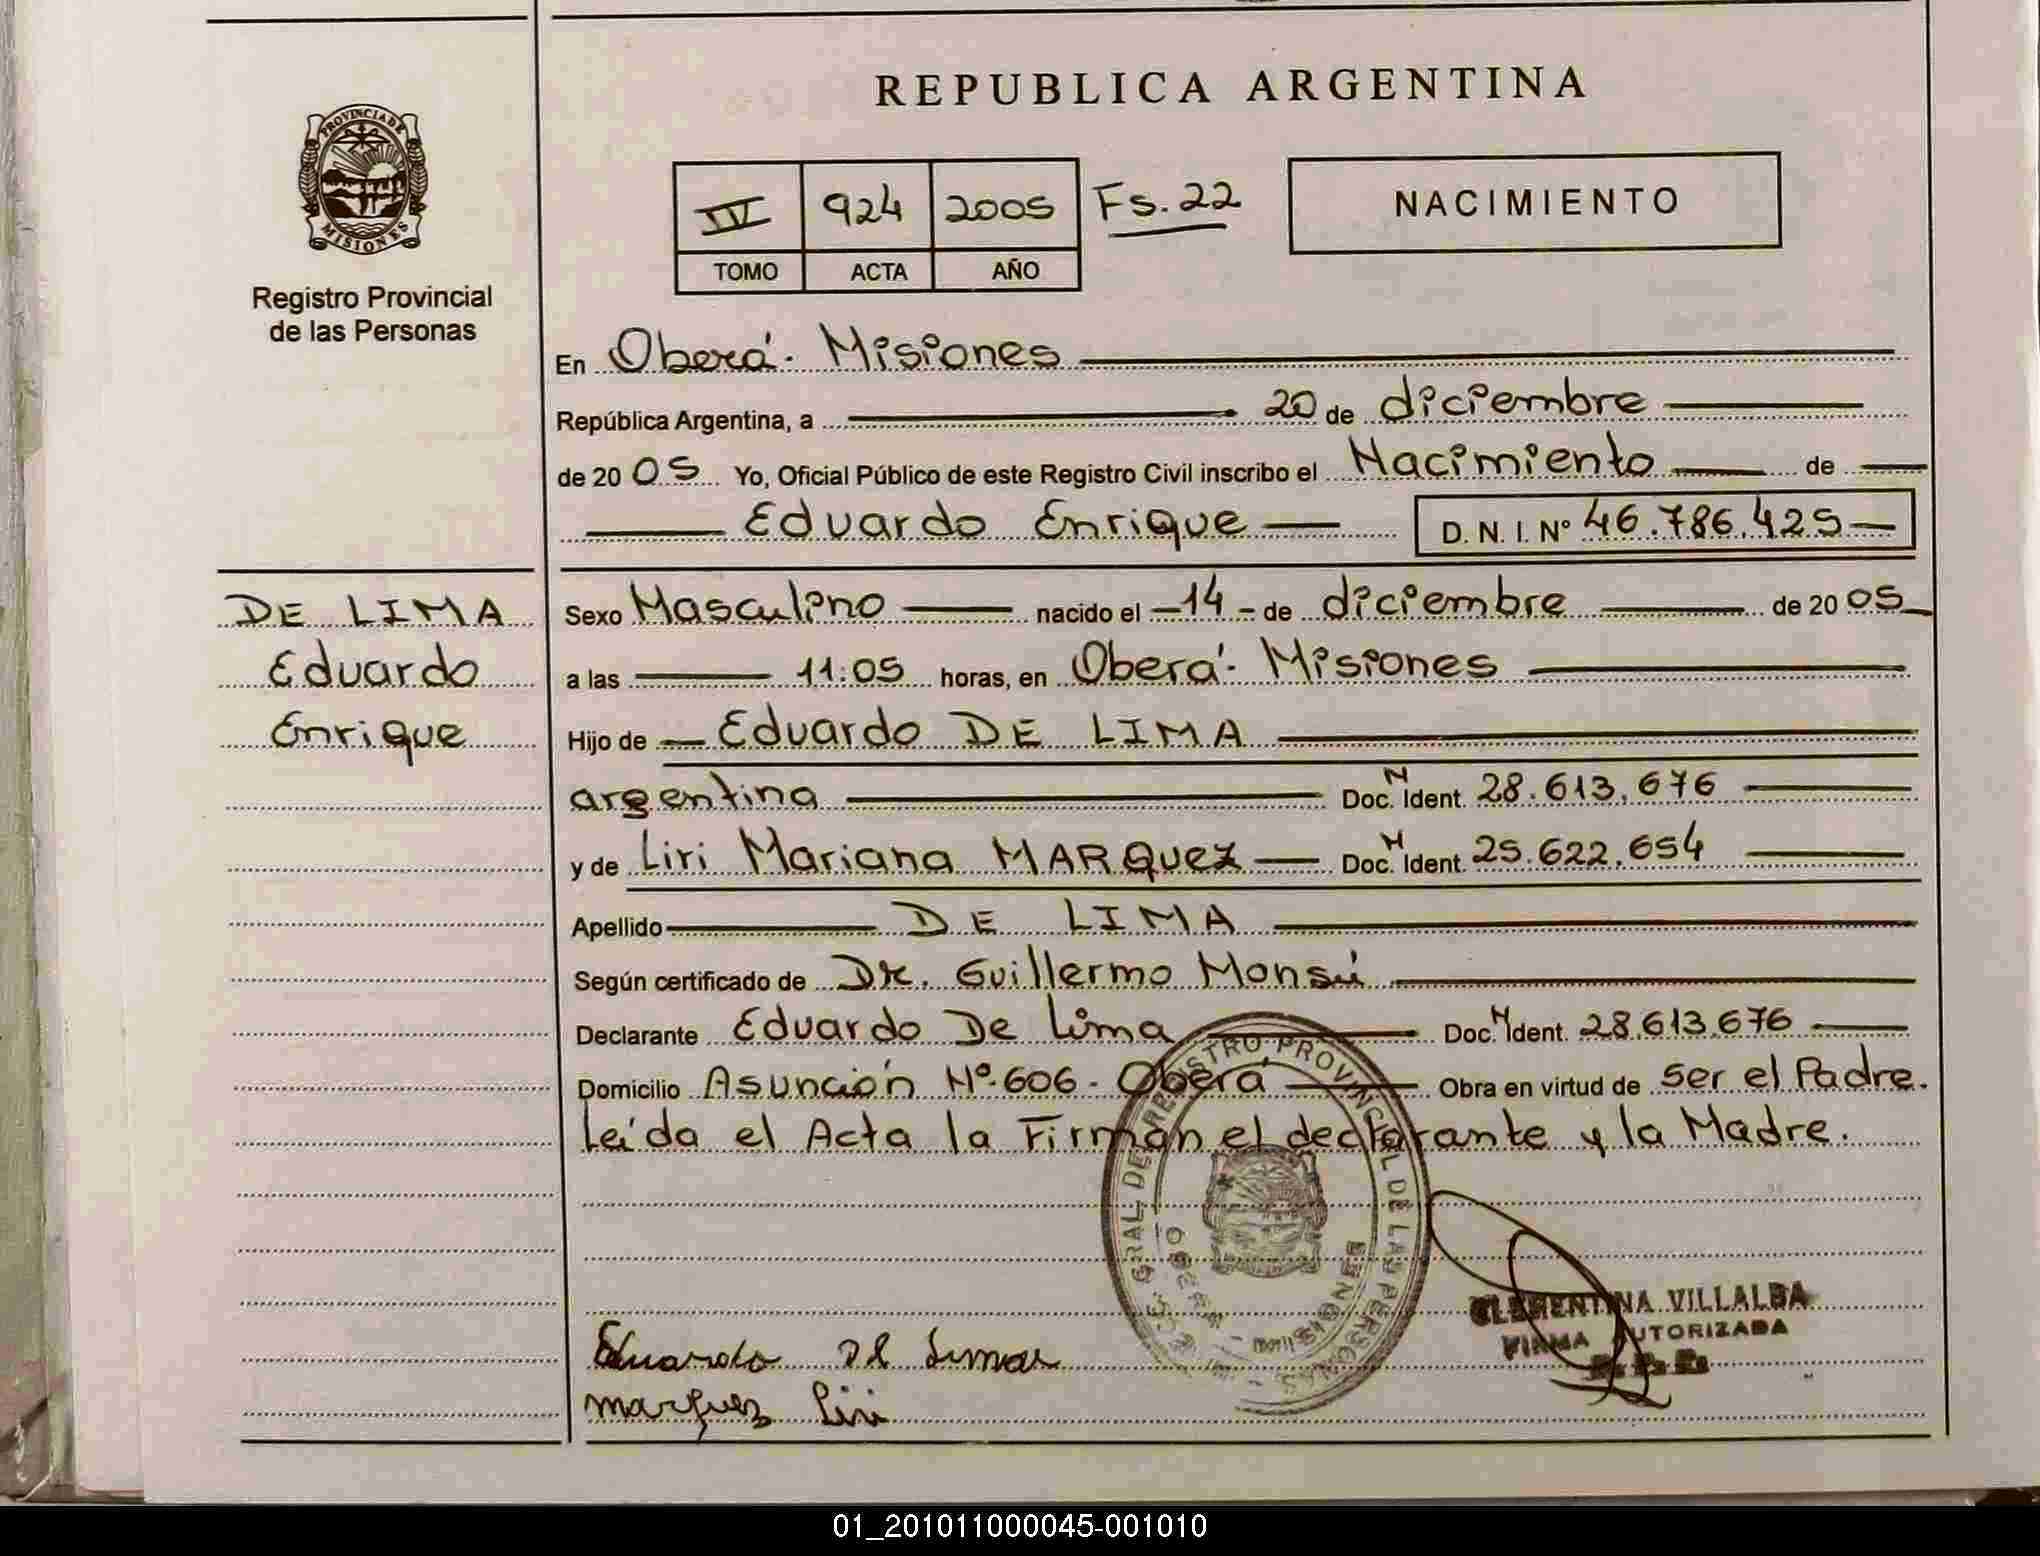 REPUBLICA ARGENTINA
PROVINCIA DE
MISIONES
Registro Provincial
de las Personas
IV 924 2005 Fs. 22
TOMO ACTA AÑO
NACIMIENTO
En Oberá - Misiones
República Argentina, a 20 de diciembre
de 20 05 Yo, Oficial Público de este Registro Civil inscribo el Nacimiento de
Eduardo Enrique D. N. I. Nº 46.786.425
DE LIMA
Eduardo
Enrique
Sexo Masculino nacido el 14 de diciembre de 20 05
a las 11:05 horas, en Oberá - Misiones
Hijo de Eduardo DE LIMA
argentina Doc. N Ident. 28.613.676
y de Liri Mariana MARQuez Doc. N Ident. 25.622.654
Apellido DE LIMA
Según certificado de Dr. Guillermo Monsú
Declarante Eduardo De Lima Doc. N Ident. 28.613.676
Domicilio Asunción Nº 606 - Oberá Obra en virtud de ser el Padre.
Leída el Acta la Firman el declarante y la Madre.
GRAL. DEL REGISTRO PROVINCIAL DE LAS PERSONAS
MISIONES
CLEMENTINA VILLALBA
FIRMA AUTORIZADA
Eduardo de Lima
marquez Liri
01_201011000045-001010